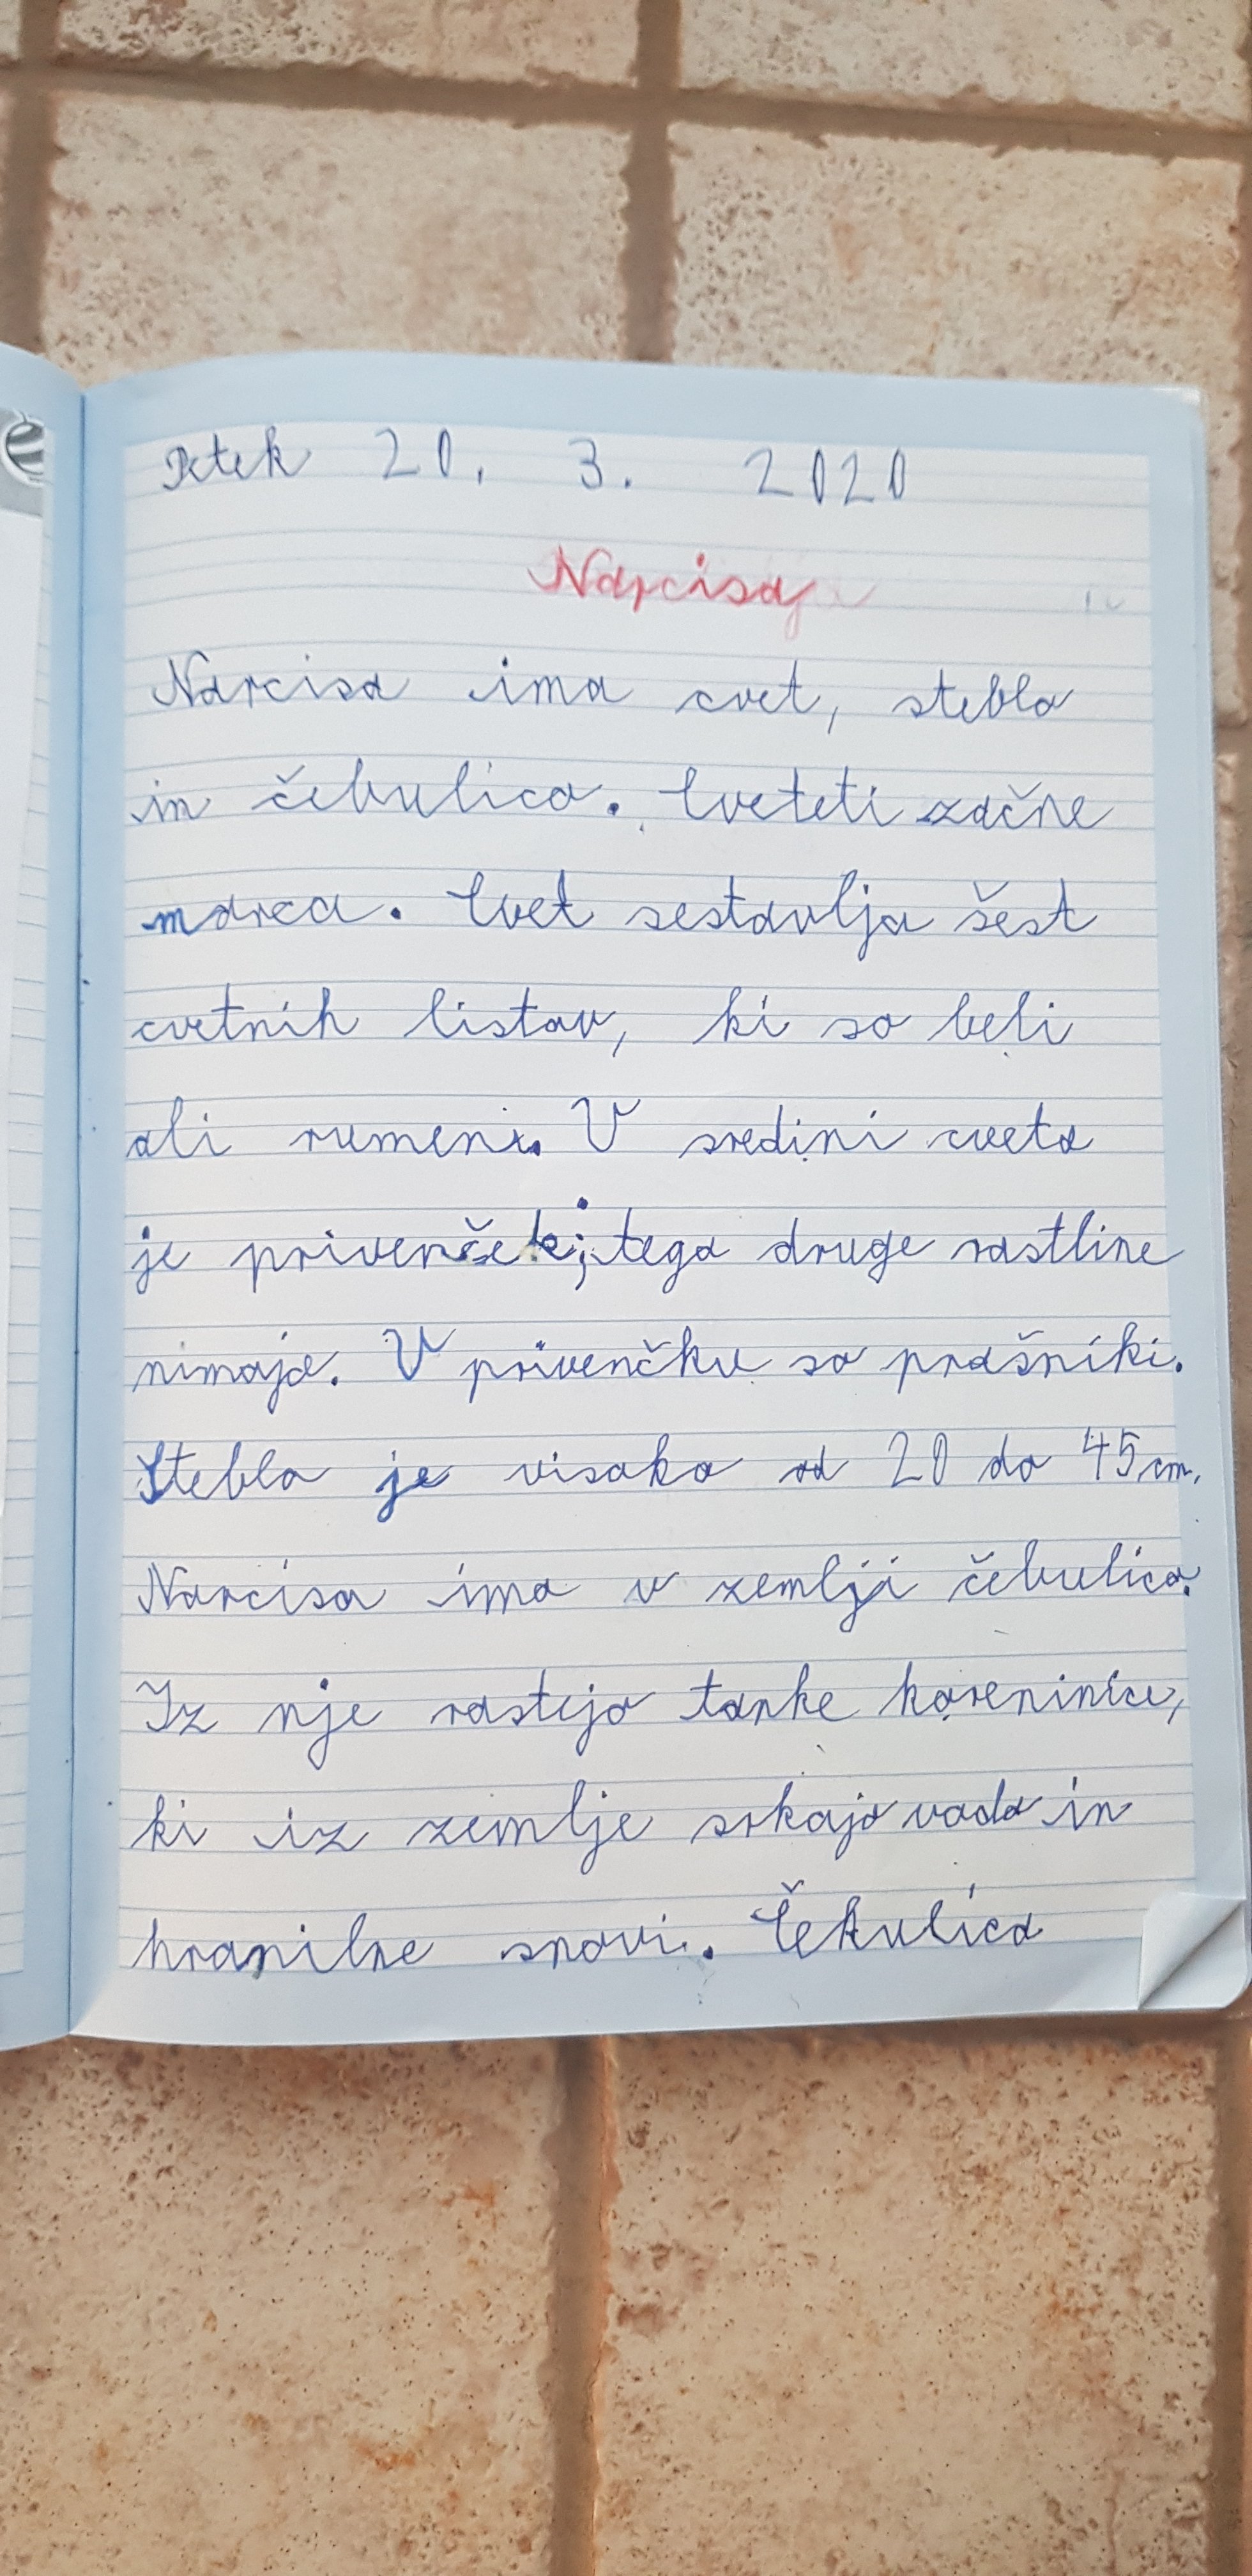 Petek 20. 3. 2020
Narcisa
Narcisa ima cvet, steblo
in čebulico. Cveteti začne
marca. Cvet sestavlja šest
cvetnih listov, ki so beli
ali rumeni. V sredini cveta
je privenček; tega druge rastline
nimajo. V privenčku so prašniki.
Steblo je visoko od 20 do 45 cm.
Narcisa ima v zemlji čebulico.
Iz nje rastejo tanke koreninice,
ki iz zemlje srkajo vodo in
hranilne snovi. Čebulica